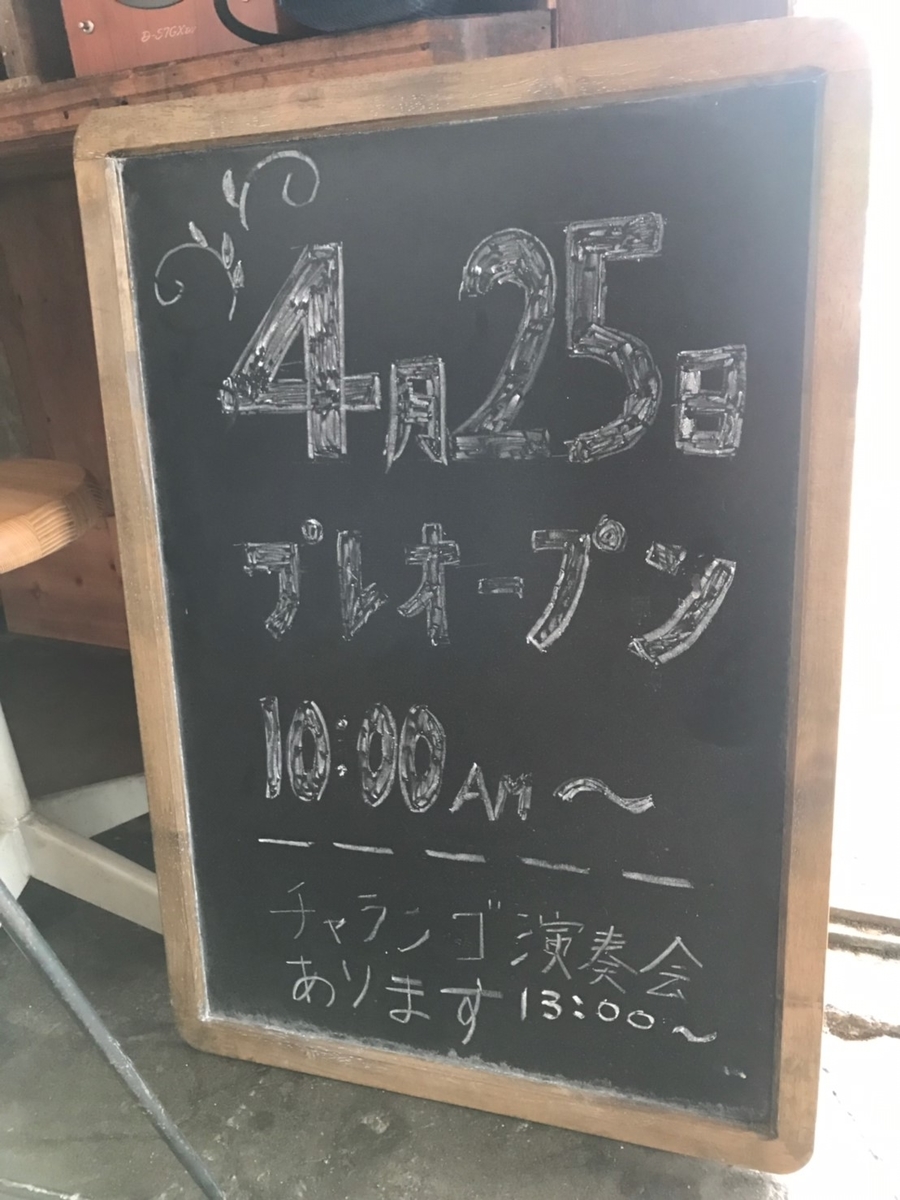 D-57GX
4月25日
プレオープン
10:00AM〜
チャランゴ演奏会
あります13:00〜